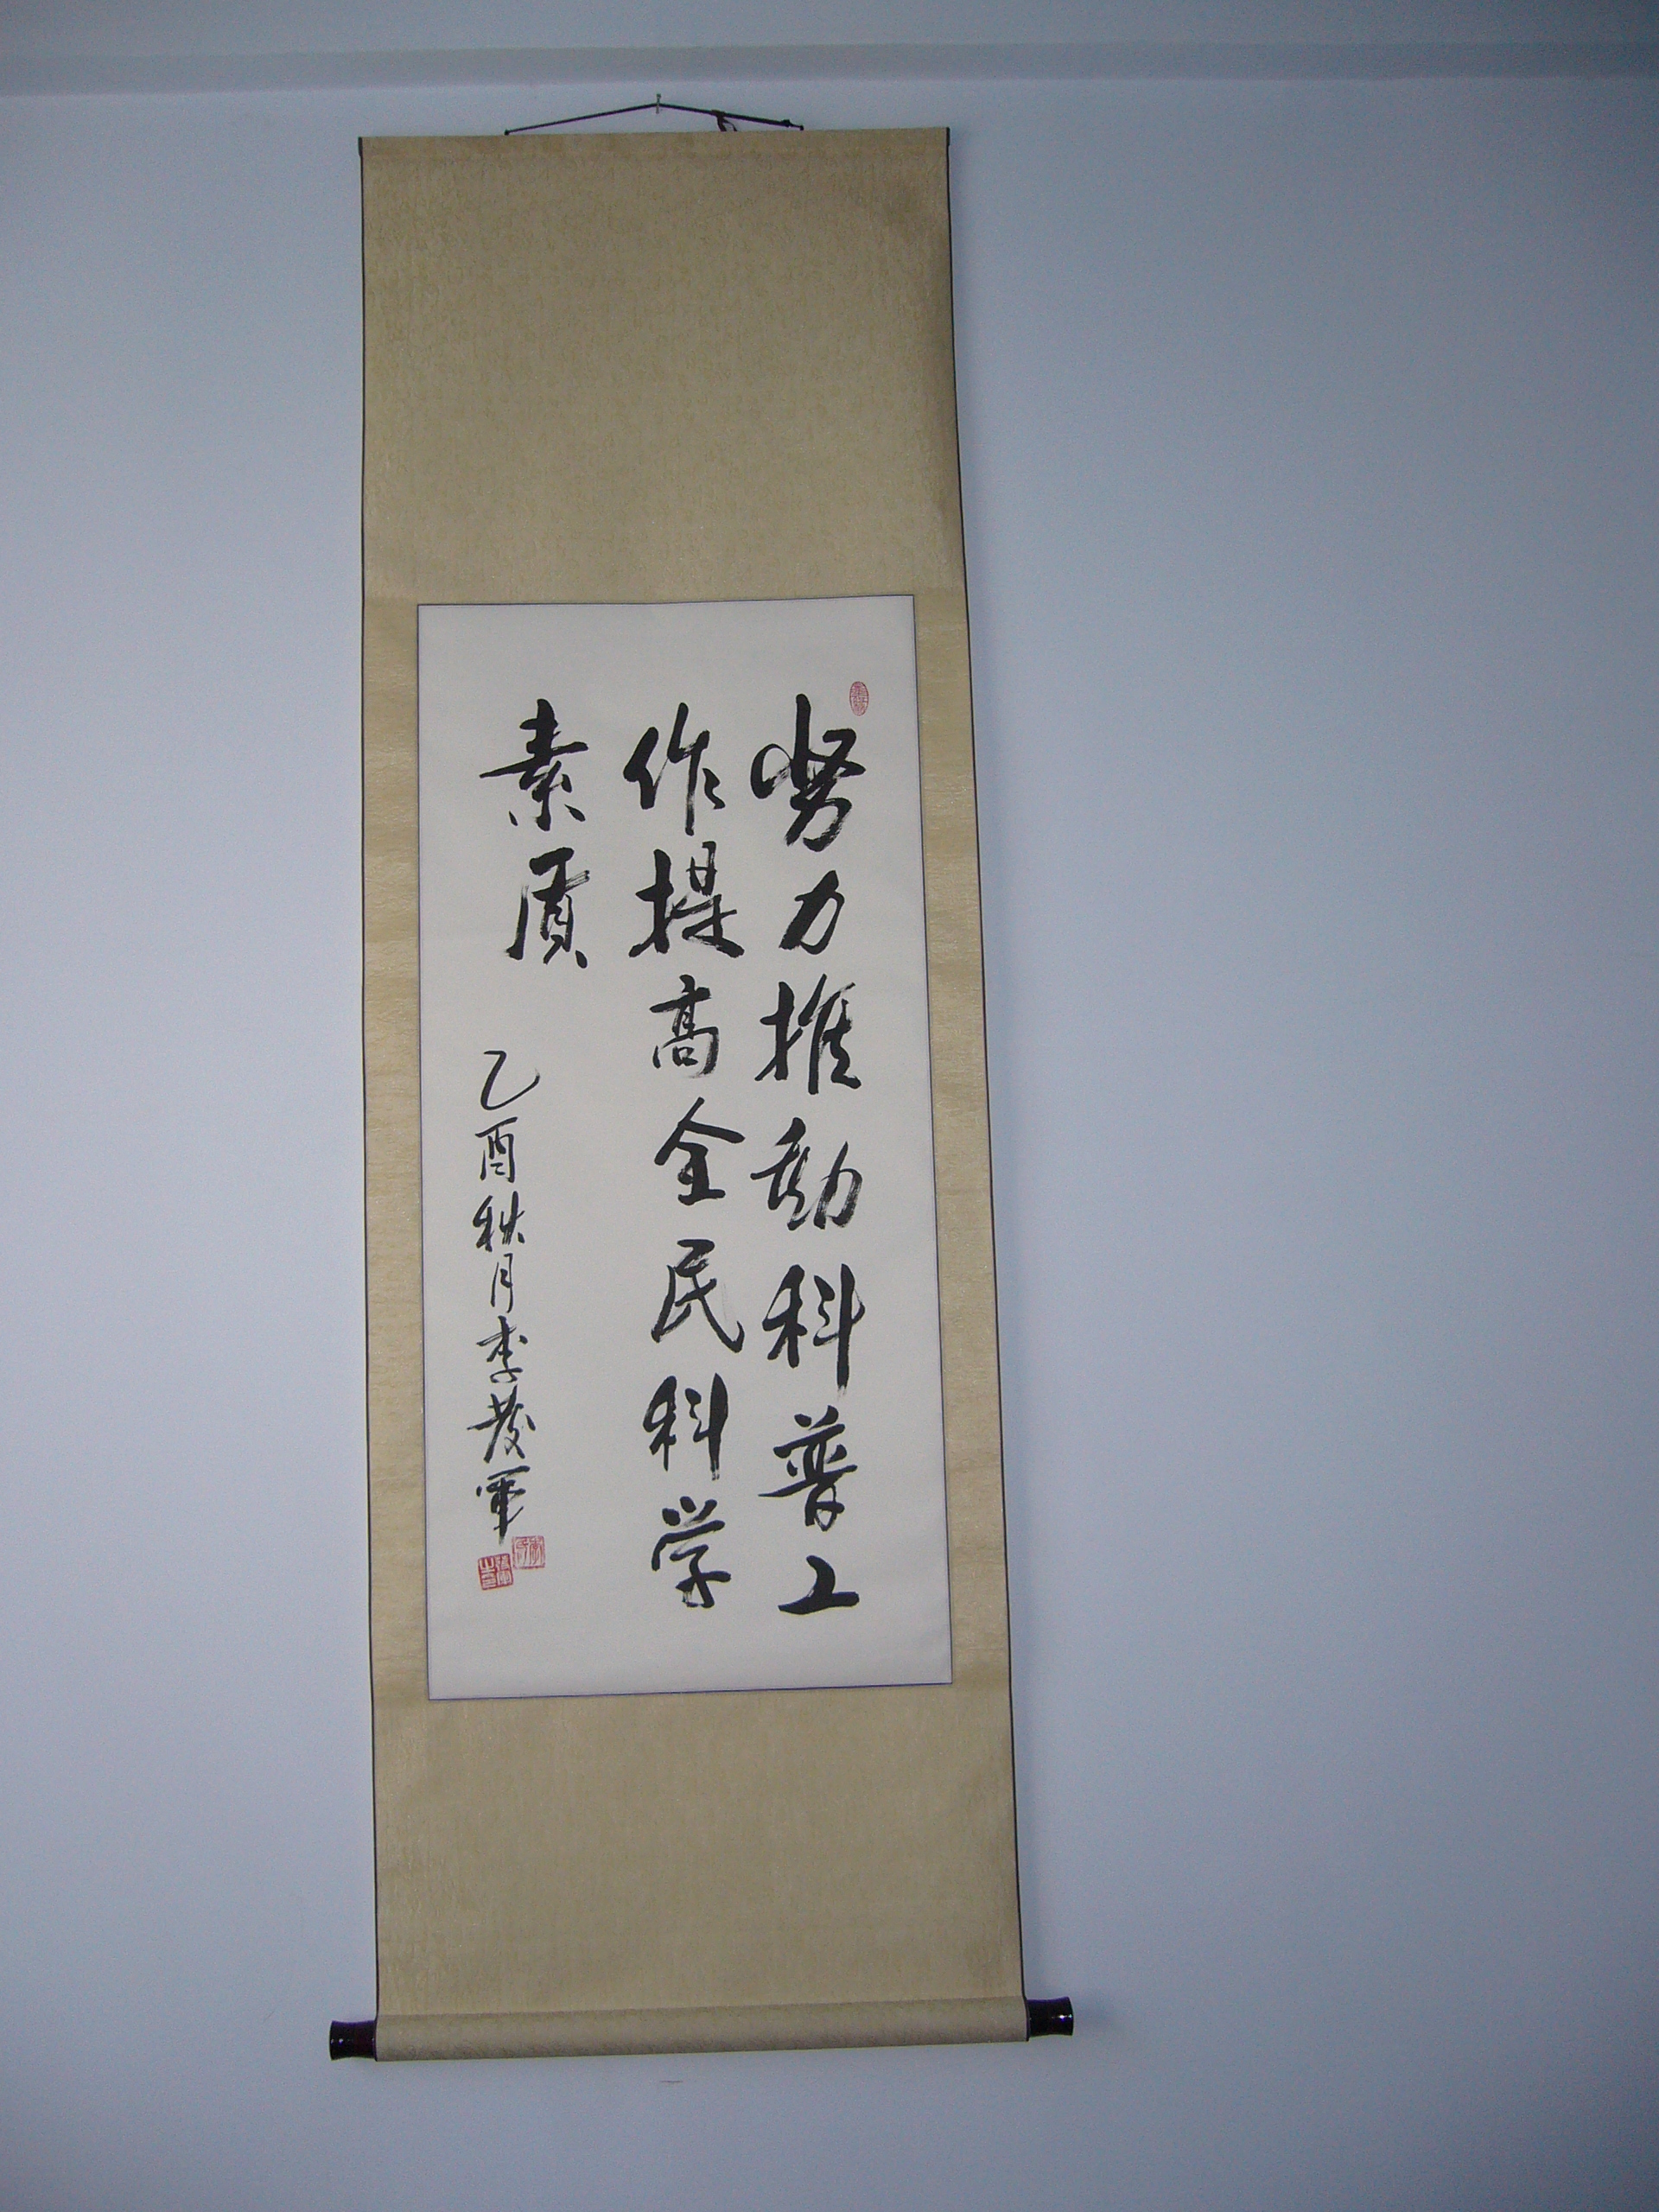 努力推动科普工
作提高全民科学
素质
乙酉秋月李发军